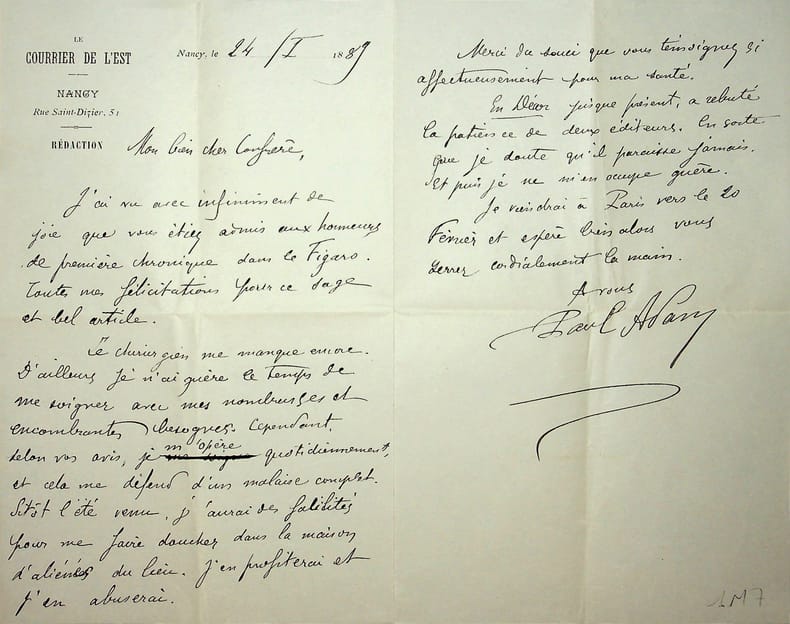 LE
COURRIER DE L'EST
NANCY
Rue Saint-Dizier, 51
RÉDACTION
Nancy, le 24 / I 1889
Mon bien cher Confrère,
J'ai vu avec infiniment de
joie que vous étiez admis aux honneurs
de première chronique dans le Figaro.
Toutes mes félicitations pour ce sage
et bel article.
Le chirurgien me manque encore.
D'ailleurs je n'ai guère le temps de
me soigner avec mes nombreuses et
encombrantes besognes. Cependant,
selon vos avis, je m'opère quotidiennement,
et cela me défend d'un malaise complet.
Sitôt l'été venu, j'aurai des facilités
pour me faire doucher dans la maison
d'aliénés du lieu. J'en profiterai et
j'en abuserai.
Merci du souci que vous témoignez si
affectueusement pour ma santé.
En Décor jusque présent, a rebuté
la patience de deux éditeurs. En sorte
que je doute qu'il paraisse jamais.
Et puis je ne m'en occupe guère.
Je viendrai à Paris vers le 20
Février et espère bien alors vous
serrer cordialement la main.
A vous
Paul Adam
1M7